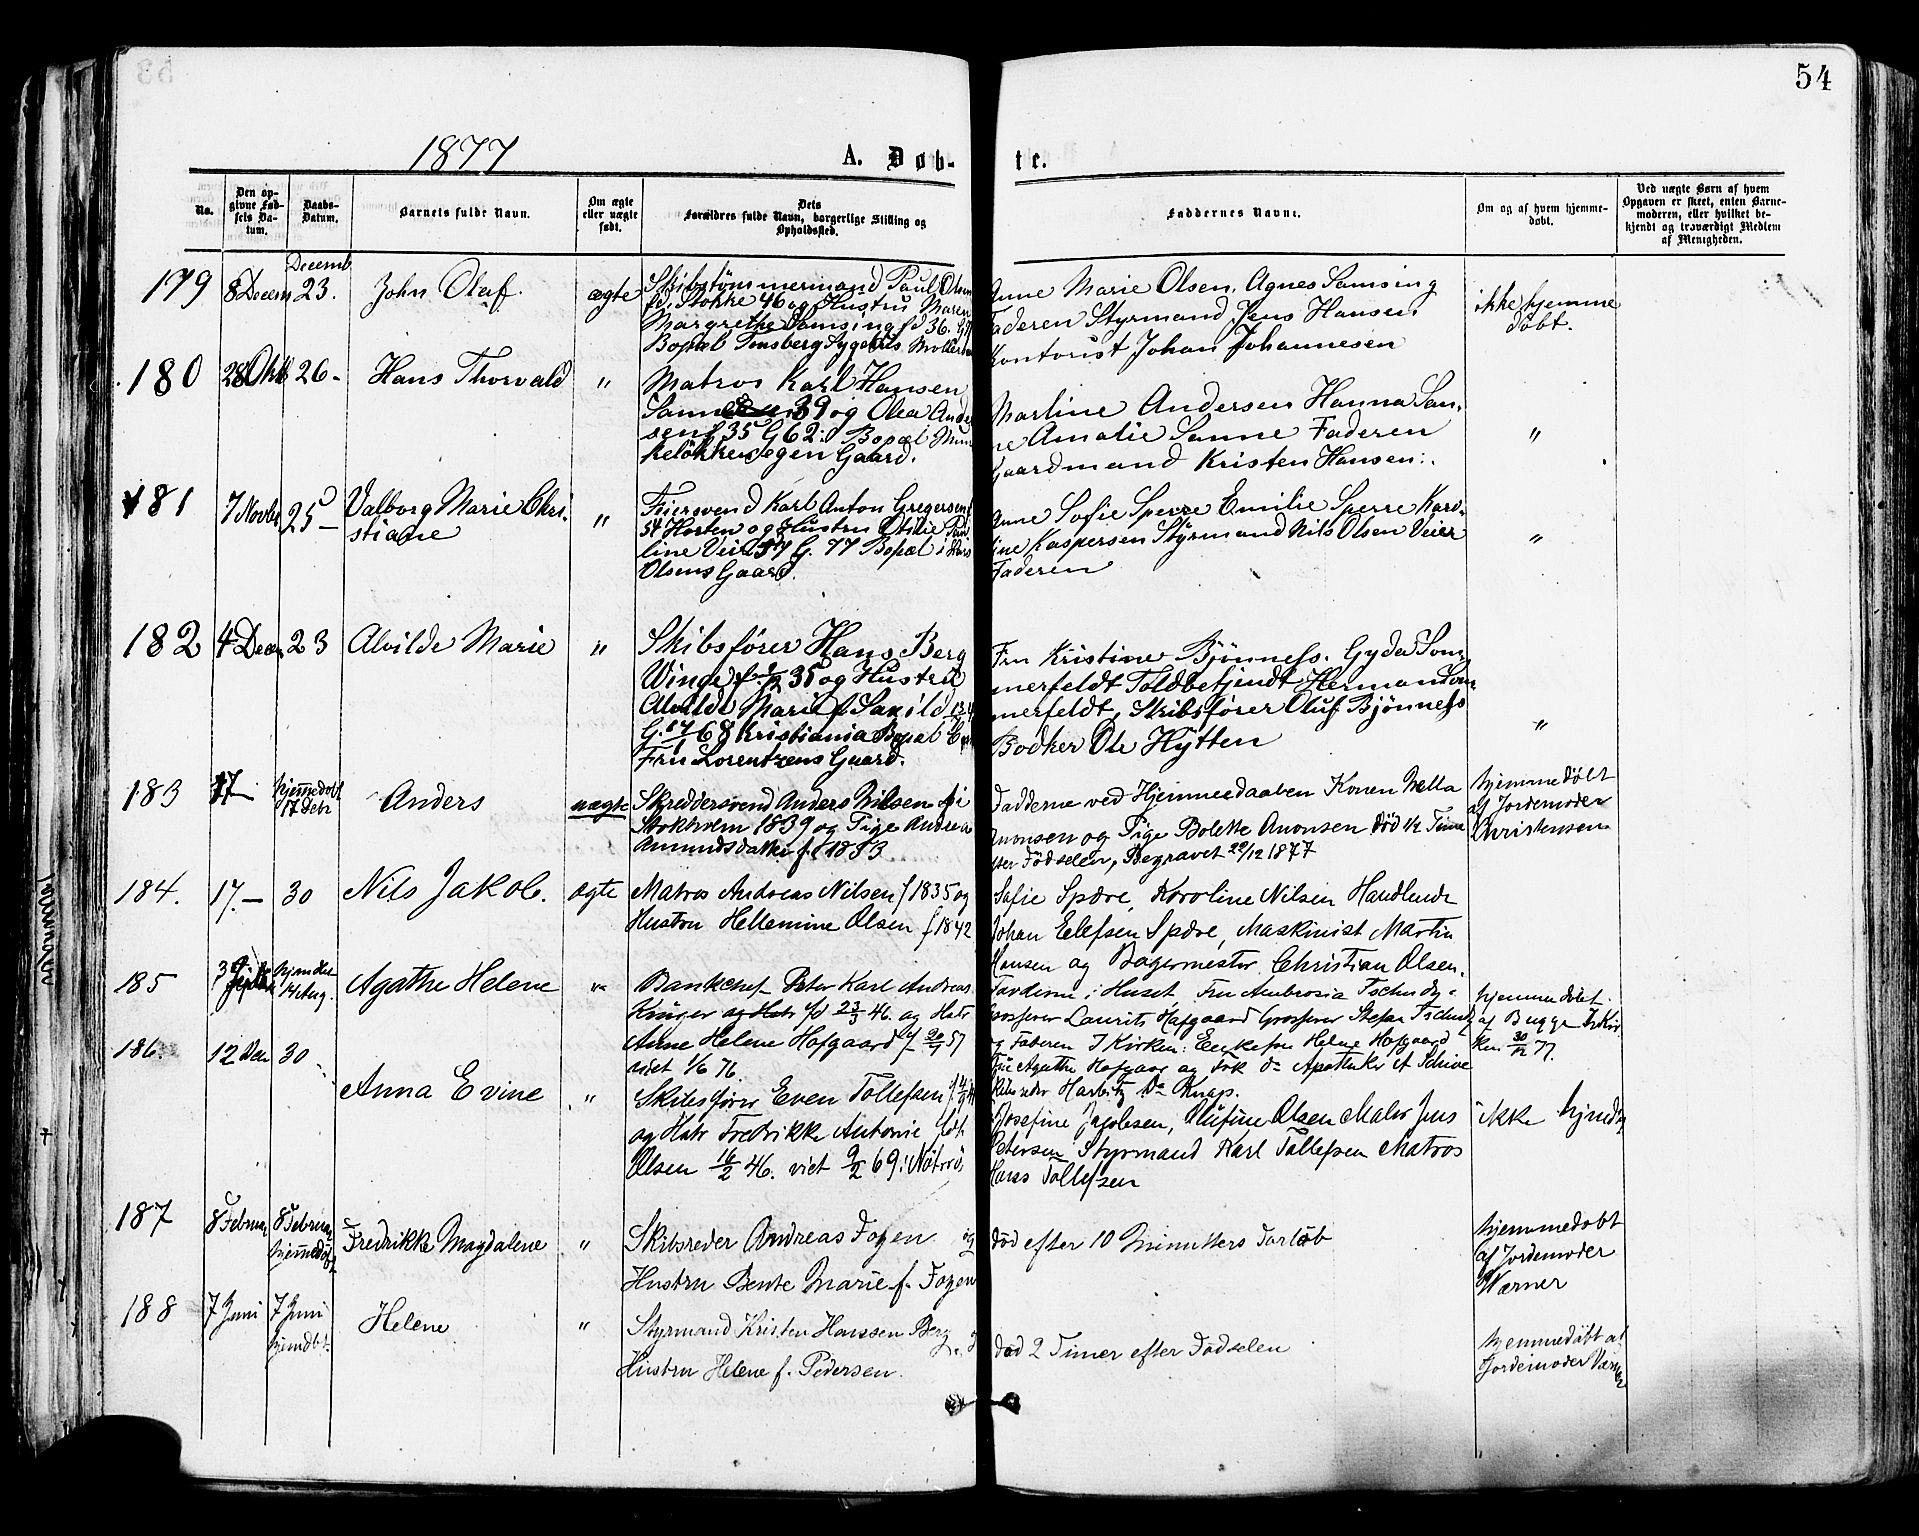 54
1877
A. Døb-
te.
No.
Den op-
givne Fød-
sels Da-
tum.
Daabs-
Datum.
Barnets fulde Navn.
Om ægte
eller uægte
født.
Dets
Forældres fulde Navn, borgerlige Stilling og
Opholdssted.
Faddernes Navne.
Om og af hvem hjemme-
døbt.
Ved uægte Børn af hvem
Opgaven er skeet, enten Barne-
moderen, eller hvilket be-
kjendt og troværdigt Medlem
af Menigheden.
179
8 Decem
Decemb
23.
John Olaf.
ægte
Skibstømmermand Paul Olsen
fd. Stokke 46 og Hustru Maren
Margrethe Samsing fd 36.
Bopæl Tønsberg
Anne Marie Olsen, Agnes Samsing
Faderen Styrmand Jens Hansen.
Kontorist Johan Johannesen
ikke hjemme
døbt.
180
28 Okt
26 -
Hans Thorvald
"
Matros Karl Hansen
39 og Olea Ander
sen f 35 G 62: Bopæl Mun
keløkken egen Gaard.
Martine Andersen Hanna San-
ne Amalie Sanne Faderen
Gaardmand Kristen Hansen.
"
181
7 Novbr
25 -
Valborg Marie Chri-
stiane
"
Feiersvend Karl Anton Gregersen f
54 Horten og Hustru Otilie Pau
line Veier 57 G. 77 Bopæl i
Olsens Gaard.
Anne Sofie Sperre Emilie Sperre Karo-
line Kaspersen Styrmand Nils Olsen Veier
Faderen
"
182
4 Decm
23
Alvilde Marie
"
Skibsfører Hans Berg
Winge f. 35 og Hustru
Alvilde Marie f
G. 68 Kristiania Bopæl
Fru Lorentzens Gaard.
Fru Kristine Bjønness. Gyda Som
merfeldt Toldbetjendt Herman Som
merfeldt, Skibsfører Oluf Bjønness
Bødker Ole Hytten
"
183
17 -
hjemmedøbt
17 Debr
Anders
uægte
Skreddersvend Anders Nilsen f i
Stokholm 1839 og Pige Andrea
Amundsdatter f. 1853
Fadderne ved Hjemmedaaben Konen Nella
Anonsen og Pige Bolette Anonsen død 1/2 Time
efter Fødselen, Begravet 20/12 1877
hjemmedøbt
af Jordemoder
Christensen
184.
17. -
30
Nils Jakob.
ægte
Matros Andreas Nilsen f 1835 og
Hustru Hellemine Olsen f 1842
Sofie Spære, Karoline Nilsen Handlende
Johan Elefsen Spære, Maskinist Martin
Hansen og Bagermester Christian Olsen.
185
hjemdøbt
14 Aug.
Agathe Helene
"
Bankchef Peter Karl Andreas
Krüger og Hstr fd 23/3 46. og Hstr
Anne Helene Hofgaard f 57
viet 1/6 76.
Fadderne i Huset Fru Ambrosia Tschudy.
Grosserer Laurits Hofgaard Grosserer Stefan Tschudy
og Faderen I Kirken: Enkefru Helene Hofgaard
Fru Agathe Hofgaar og Frk do Apotheker A Schive
Skibsreder Harbitz Do Knap.
hjemmedøbt
af Bugge I Kir
ken 30/12 77.
186
12 Den
30
Anna Evine
"
Skibsfører Even Tollefsen f.
og Hstr Fredrikke Antonie født
Olsen 16/2 46. viet 9/2 69 i Nøtterø
Josefine Jacobsen, Olufine Olsen Maler Jens
Petersen Styrmand Karl Tollefsen Matros
Hans Tollefsen
ikke hjemdø
187
8 Februar
8 Februar
hjemmedøbt
Fredrikke Magdalene
"
Skibsreder Andreas Foyen og
Hustru Bente Marie f. Foyen
død efter 10 Minutters Forløb
hjemmedøbt
af Jordemoder
Wærner
188
7 Juni
7 Juni
hjemdøbt
Helene
"
Styrmand Kristen Hanssen Berg og
Hustru Helene f. Pedersen.
død 2 Timer efter Fødselen
hjemmedøbt af
Jordemoder Værner